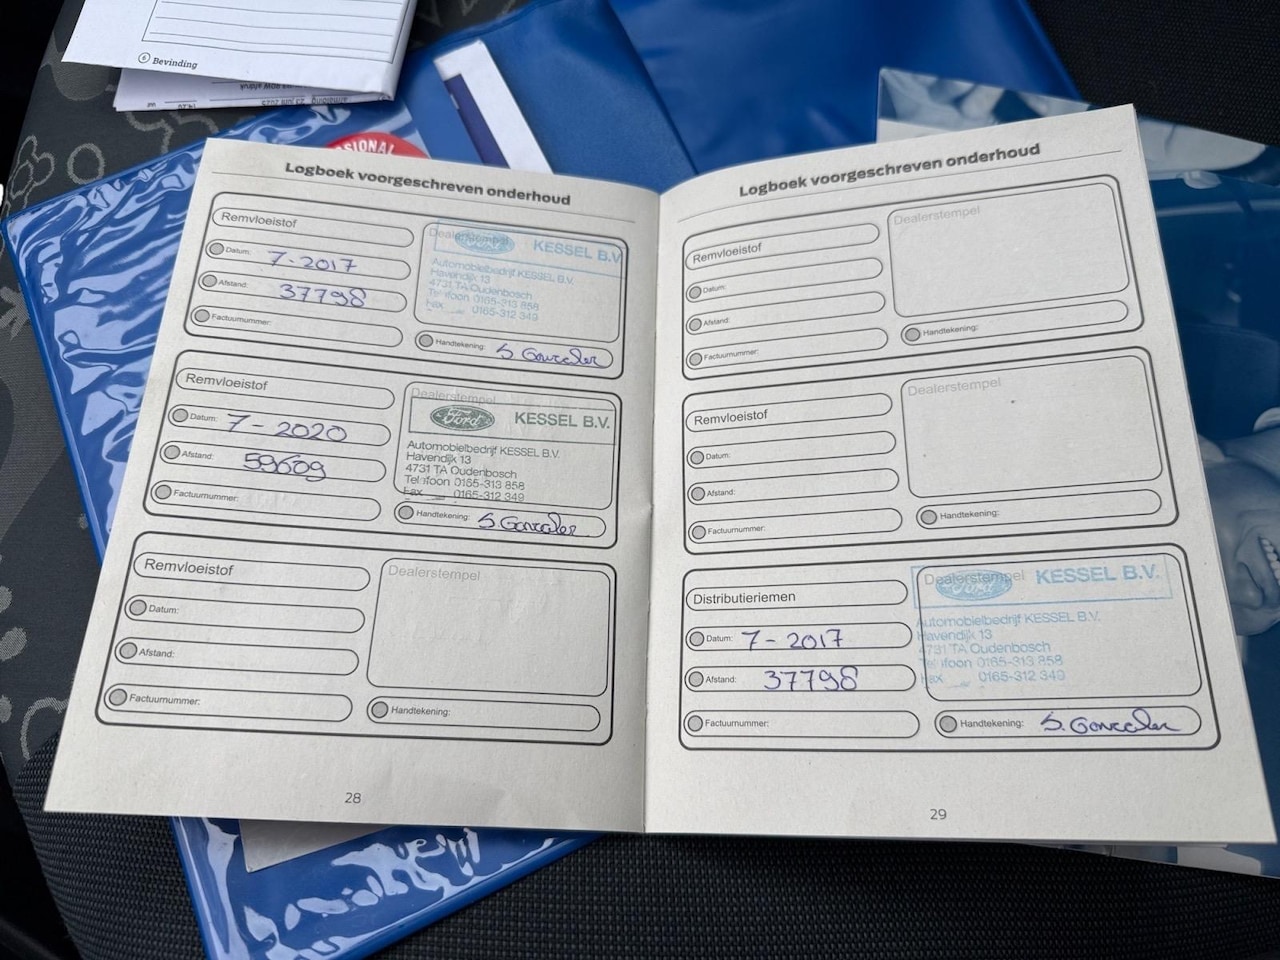 6 Bevinding
SIONAL
Logboek voorgeschreven onderhoud
Remvloeistof
Datum: 7-2017
Afstand: 37798
Factuurnummer:
Dealerstempel
Ford KESSEL B.V.
Automobielbedrijf KESSEL B.V.
Havendijk 13
4731 TA Oudenbosch
Telefoon 0165-313 858
Fax 0165-312 349
Handtekening: S. Gonzales
Remvloeistof
Datum: 7-2020
Afstand: 59609
Factuurnummer:
Dealerstempel
Ford KESSEL B.V.
Automobielbedrijf KESSEL B.V.
Havendijk 13
4731 TA Oudenbosch
Telefoon 0165-313 858
Fax 0165-312 349
Handtekening: S. Gonzales
Remvloeistof
Datum:
Afstand:
Factuurnummer:
Dealerstempel
Handtekening:
28
Logboek voorgeschreven onderhoud
Remvloeistof
Datum:
Afstand:
Factuurnummer:
Dealerstempel
Handtekening:
Remvloeistof
Datum:
Afstand:
Factuurnummer:
Dealerstempel
Handtekening:
Distributieriemen
Datum: 7-2017
Afstand: 37798
Factuurnummer:
Dealerstempel
Ford KESSEL B.V.
Automobielbedrijf KESSEL B.V.
Havendijk 13
4731 TA Oudenbosch
Telefoon 0165-313 858
Fax 0165-312 349
Handtekening: S. Gonzales
29